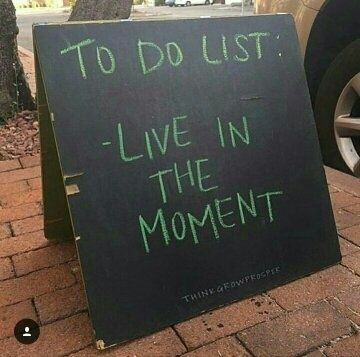 TO DO LIST:
-LIVE IN
THE
MOMENT
THINKGROWPROSPER